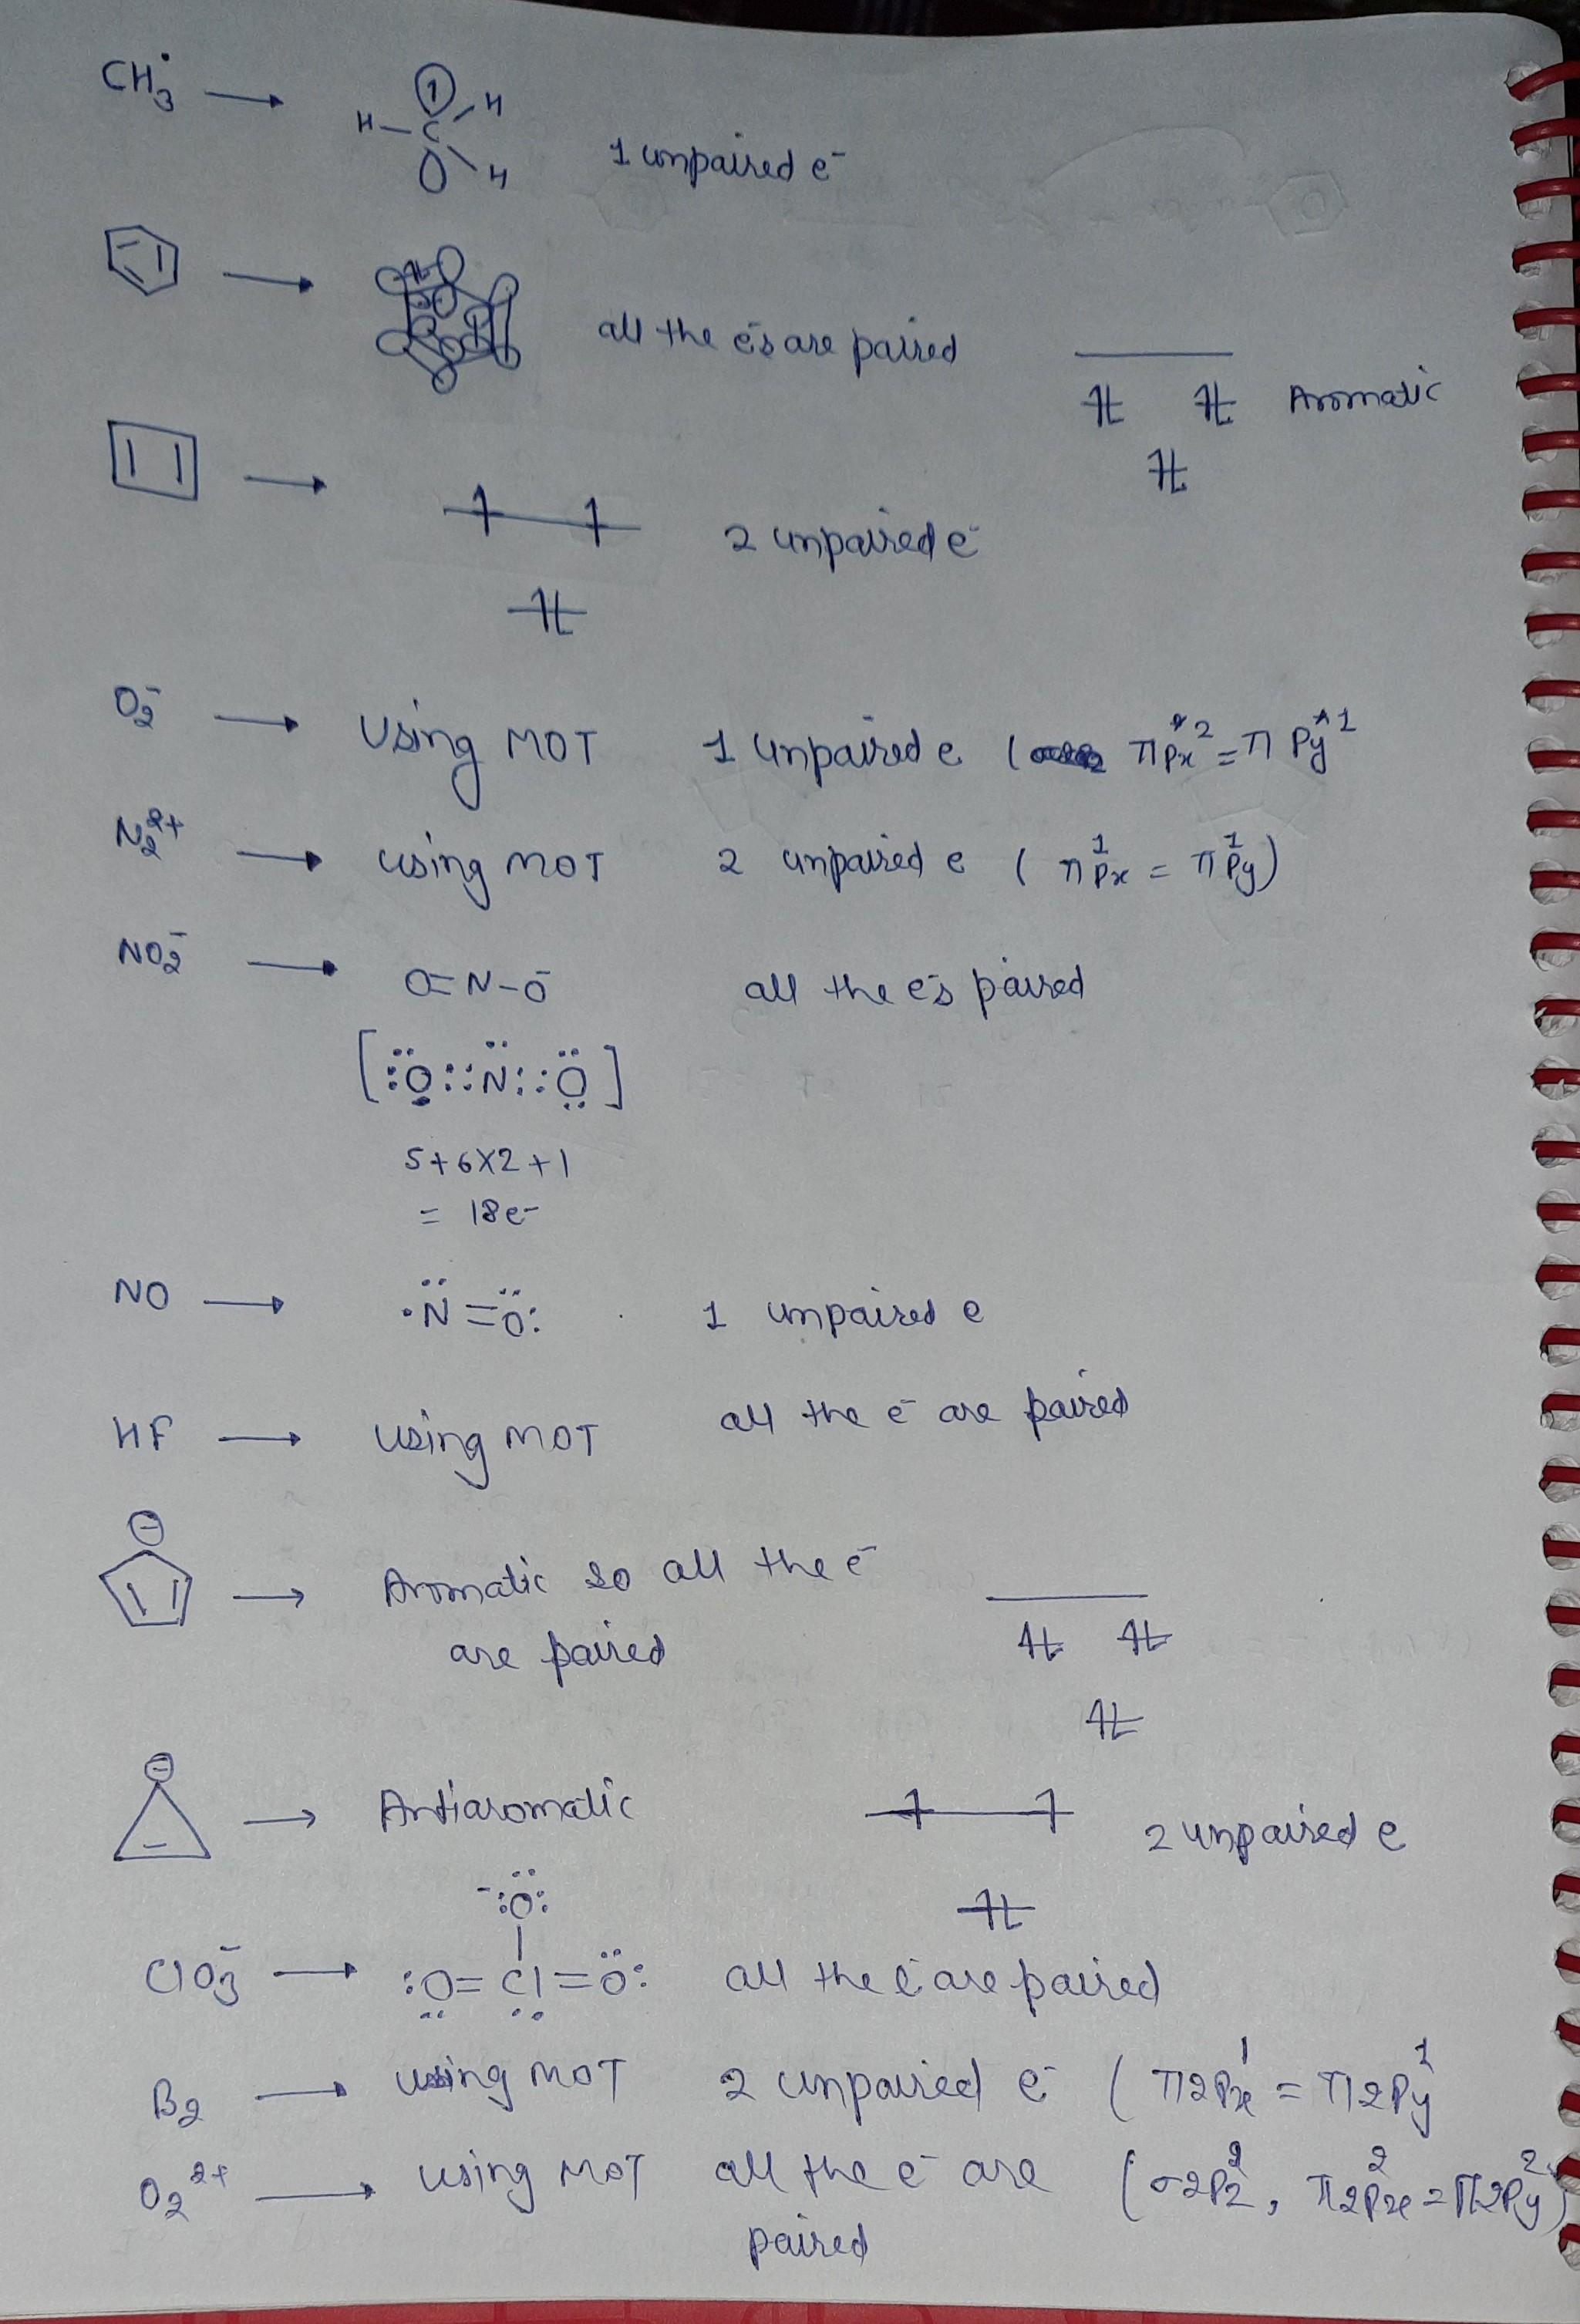 CH3• → H–C H H 1 unpaired e-
→ all the e-s are paired Aromatic
→ 2 unpaired e-
O2- → Using MOT 1 unpaired e ( πPx*2 = πPy*1
N2 2+ → using MOT 2 unpaired e ( πPx1 = πPy1)
NO2- → O=N–O- all the e-s paired
[:O::N::O]
5+6×2+1
= 18e-
NO → •N=O: 1 unpaired e
HF → using MOT all the e- are paired
⊖
→ Aromatic so all the e-
are paired
⊖
→ Antiaromatic 2 unpaired e
-:O:
ClO3- → :O=Cl=O: all the e- are paired
B2 → using MOT 2 unpaired e- ( π2Px1 = π2Py1
O2 2+ → using MOT all the e- are (σ2Pz2, π2Px2 = π2Py2)
paired